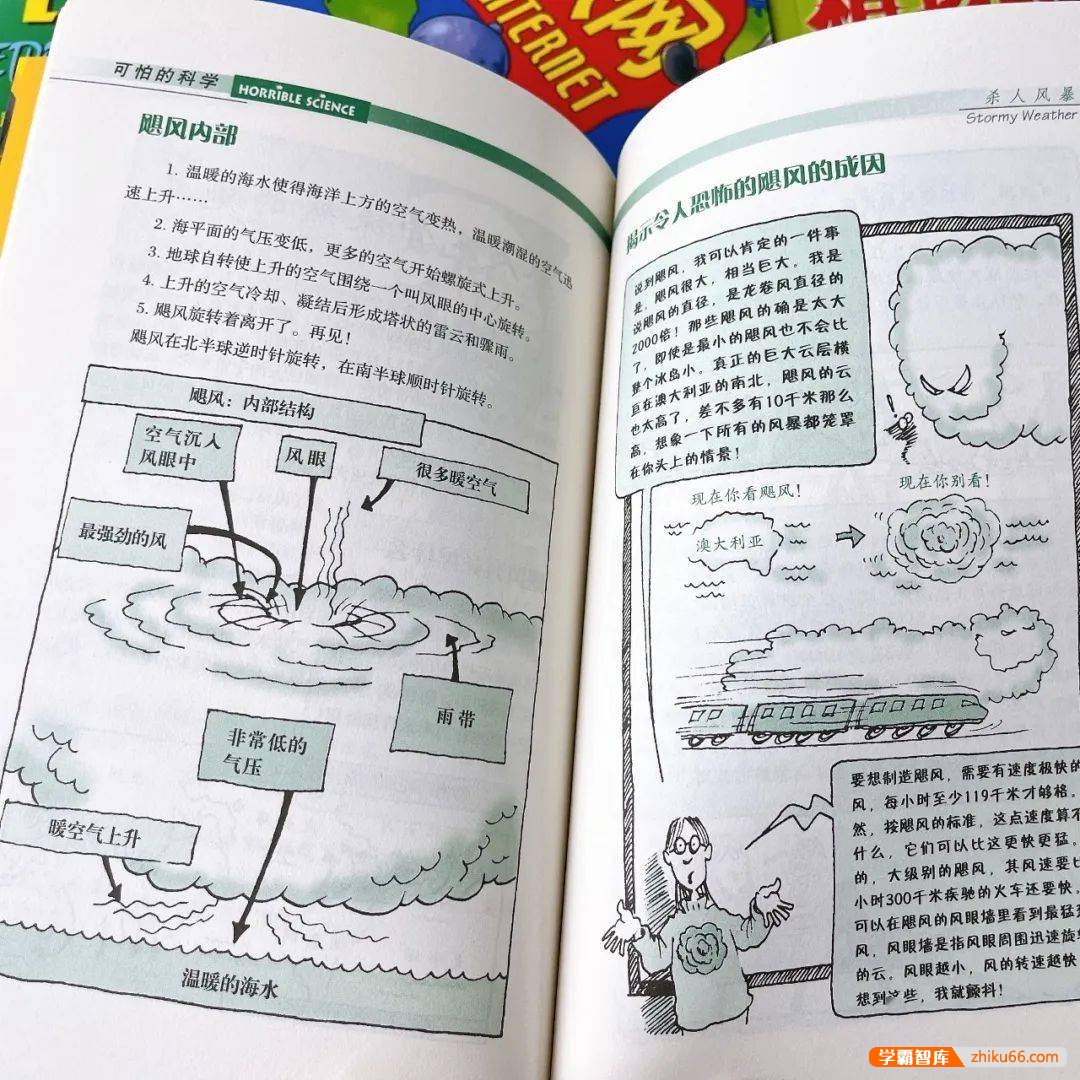 INTERNET
网
可怕的科学
HORRIBLE SCIENCE
飓风内部
1. 温暖的海水使得海洋上方的空气变热，温暖潮湿的空气迅
速上升……
2. 海平面的气压变低，更多的空气开始螺旋式上升。
3. 地球自转使上升的空气围绕一个叫风眼的中心旋转。
4. 上升的空气冷却、凝结后形成塔状的雷云和骤雨。
5. 飓风旋转着离开了。再见！
飓风在北半球逆时针旋转，在南半球顺时针旋转。
飓风：内部结构
空气沉入
风眼中
风眼
很多暖空气
最强劲的风
雨带
非常低的
气压
暖空气上升
温暖的海水
杀人风暴
Stormy Weather
揭示令人恐怖的飓风的成因
说到飓风，我可以肯定的一件事
是，飓风很大，相当巨大。我是
说飓风的直径，是龙卷风直径的
2000倍！那些飓风的确是太大
了，即使是最小的飓风也不会比
整个冰岛小。真正的巨大云层横
亘在澳大利亚的南北，飓风的云
也太高了，差不多有10千米那么
高，想象一下所有的风暴都笼罩
在你头上的情景！
现在你看飓风！
现在你别看！
澳大利亚
要想制造飓风，需要有速度极快的
风，每小时至少119千米才够格。
然，按飓风的标准，这点速度算不
什么，它们可以比这更快更猛。
的，大级别的飓风，其风速要比
小时300千米疾驰的火车还要快，
可以在飓风的风眼墙里看到最猛
风，风眼墙是指风眼周围迅速旋
的云。风眼越小，风的转速越快
想到这些，我就颤抖！
学霸智库 zhiku66.com